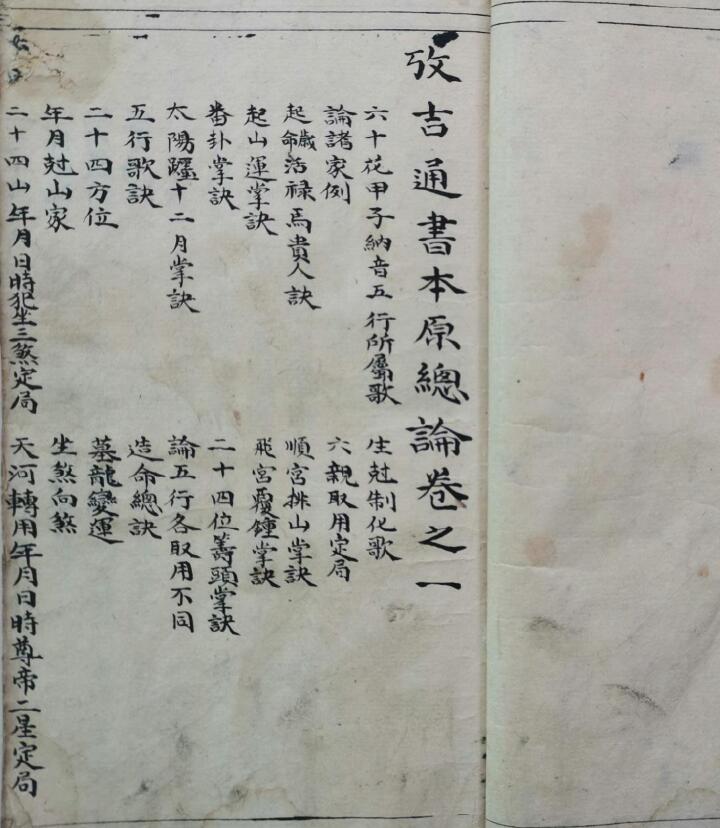 攷吉通書本原總論卷之一
六十花甲子納音五行所屬歌
生尅制化歌
論諸家例
六親取用定局
起命歲活祿馬貴人訣
順宮排山掌訣
起山運掌訣
飛宮覆鍾掌訣
番卦掌訣
二十四位籌頭掌訣
太陽躔十二月掌訣
論五行各取用不同
五行歌訣
造命總訣
二十四方位
墓龍變運
年月尅山家
坐煞向煞
二十四山年月日時犯坐三煞定局
天河轉用年月日時尊帝二星定局